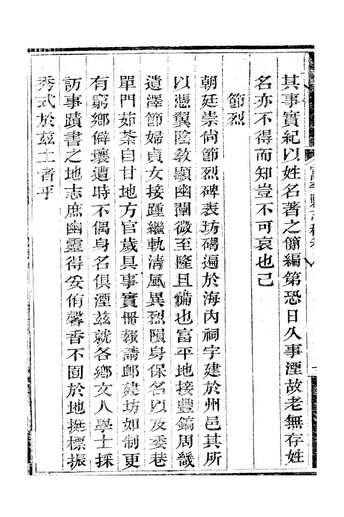 其事實紀以姓名著之篇編第恐日久事湮故老無存姓
名亦不得而知豈不可哀也已
節烈
朝廷崇尚節烈碑表坊碣遍於海內祠宇建於州邑其所
以懋翼陰教顯幽闡微至隆且備也富平地接豐鎬周畿
遺澤節婦貞女接踵繼軌清風異烈隕身保名以及委巷
單門茹荼自甘地方官歲具事實冊報請邮建坊如制更
有窮鄉僻壤遭時不偶身名俱湮茲就各鄉文人學士採
訪事蹟書之地志庶幽靈得妥侑馨香不囿於地挺標振
秀式於茲土者乎